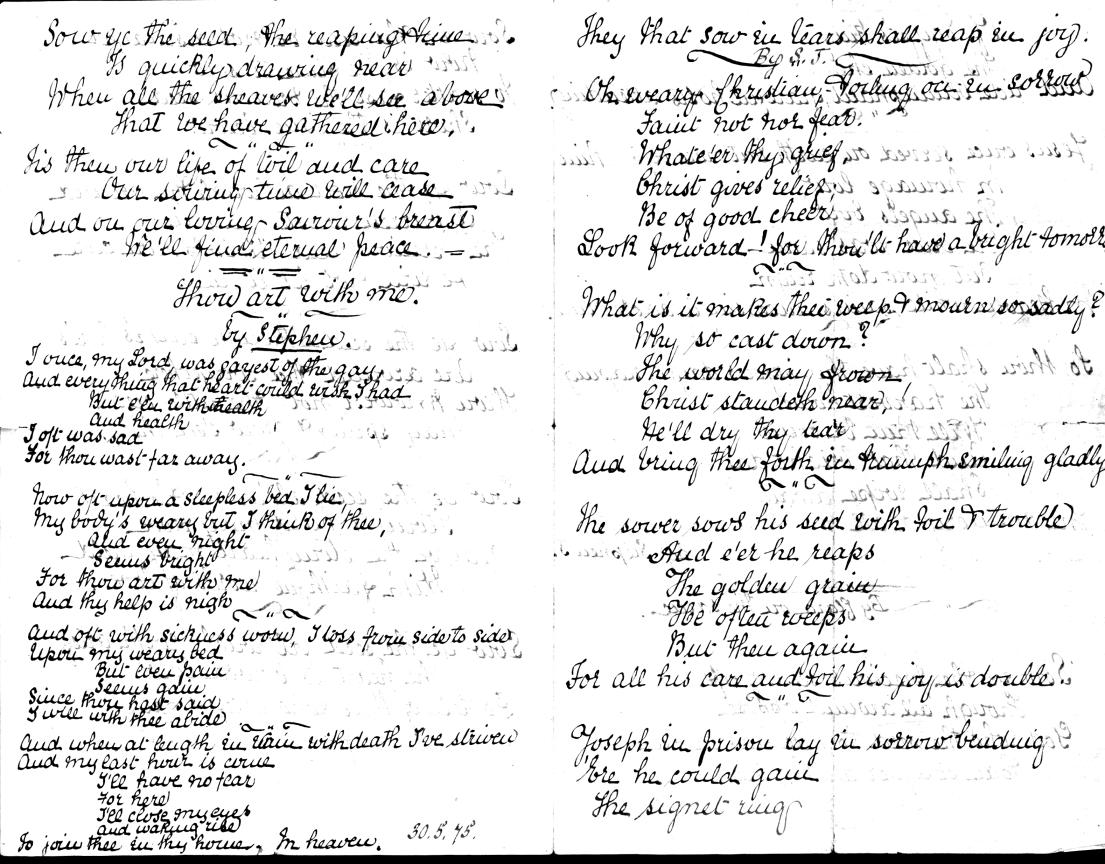 Sow ye the seed, the reaping time
Is quickly drawing near
When all the sheaves we'll see above
That we have gathered here.
Tis then our life of toil and care
Our sowing time will cease
And on our loving Saviour's breast
We'll find eternal peace.
Thou art with me.
by Stephen.
I once, my Lord, was gayest of the gay,
And everything that heart could wish I had
But e'en with wealth
And health
I oft was sad
For thou wast far away.
Now oft upon a sleepless bed I lie,
My body's weary but I think of thee,
And even night
Seems bright
For thou art with me
And thy help is nigh
And oft with sickness worn, I toss from side to side
Upon my weary bed
But even pain
Seems gain
Since thou hast said
I will with thee abide
And when at length in vain with death I've striven
And my last hour is come
I'll have no fear
For here
I'll close my eyes
and waking rise
To join thee in thy home, In heaven. 30.5.75.
They that sow in tears shall reap in joy.
By S. T.
Oh weary Christian, toiling on in sorrow
Faint not nor fear.
Whate'er thy grief
Christ gives relief,
Be of good cheer,
Look forward! for thou'lt have a bright tomorr
What is it makes thee weep & mourn so sadly?
Why so cast down?
The world may frown,
Christ standeth near,
He'll dry thy tear
And bring thee forth in triumph smiling gladly
The sower sows his seed with toil & trouble
And e'er he reaps
The golden grain
He often weeps
But then again
For all his care and toil his joy is double.
Joseph in prison lay in sorrow bending
'Ere he could gain
The signet ring